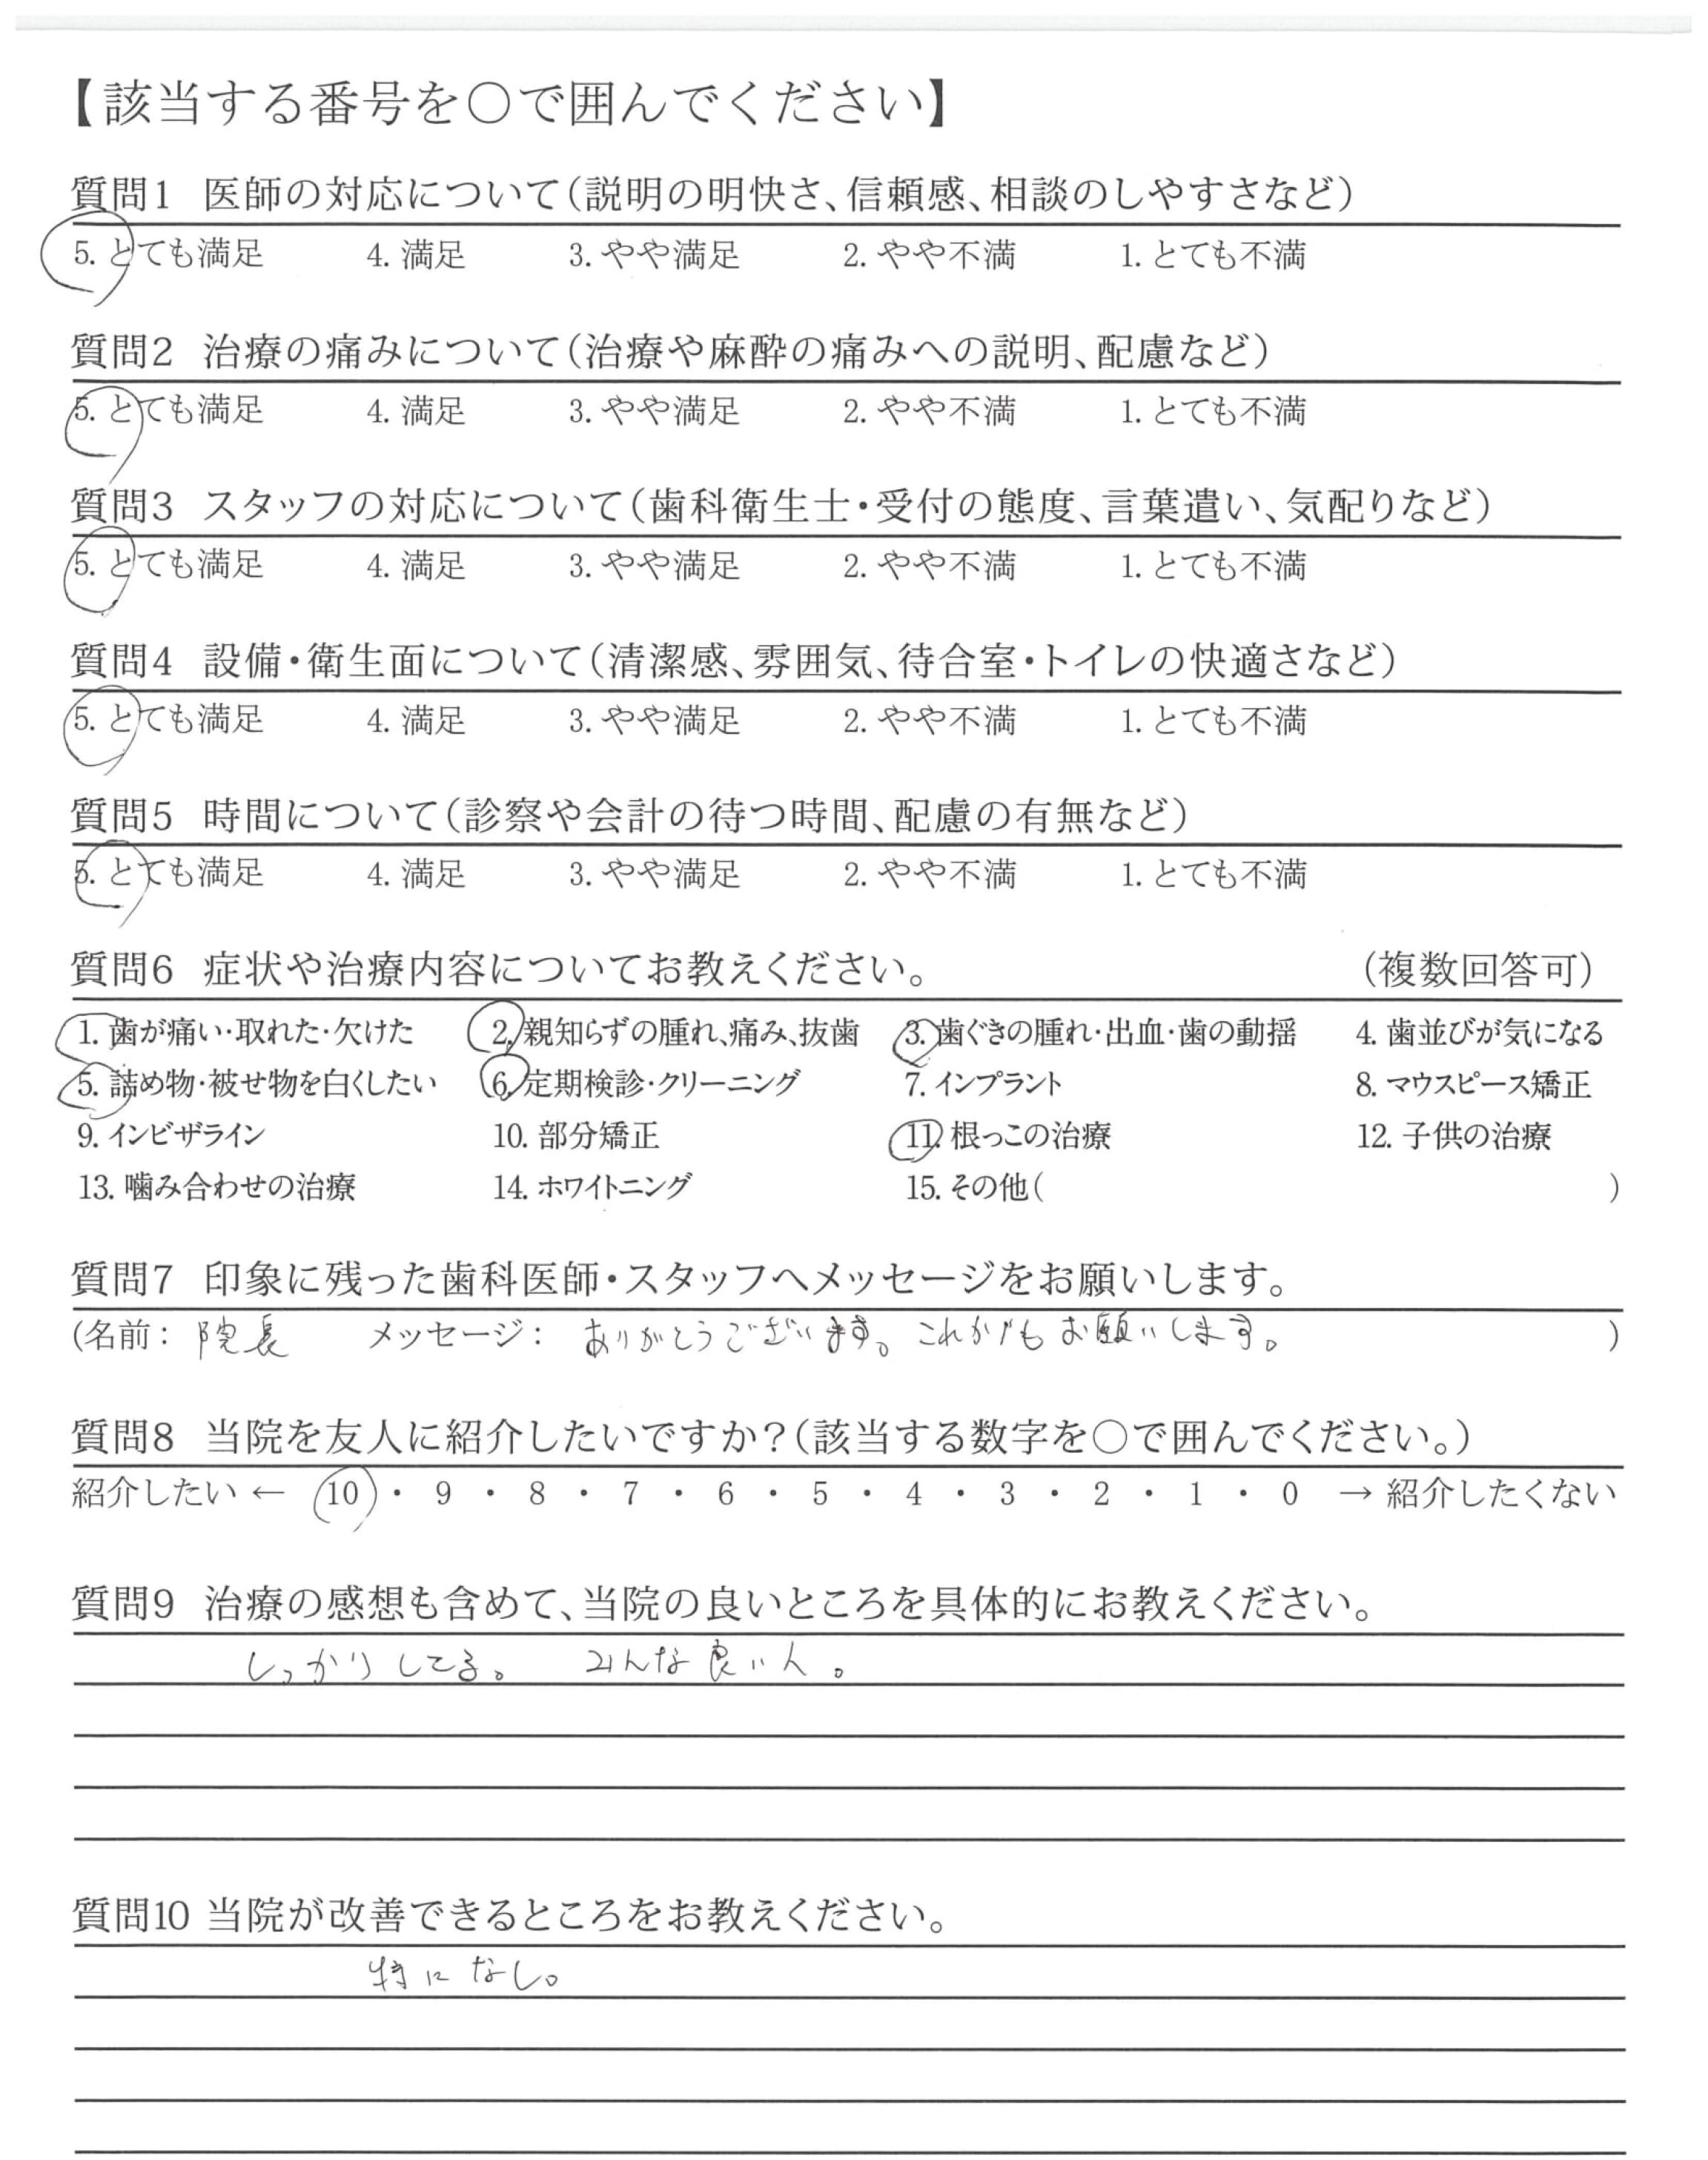 【該当する番号を○で囲んでください】
質問1 医師の対応について(説明の明快さ、信頼感、相談のしやすさなど)
5. とても満足 4. 満足 3. やや満足 2. やや不満 1. とても不満
質問2 治療の痛みについて(治療や麻酔の痛みへの説明、配慮など)
5. とても満足 4. 満足 3. やや満足 2. やや不満 1. とても不満
質問3 スタッフの対応について(歯科衛生士・受付の態度、言葉遣い、気配りなど)
5. とても満足 4. 満足 3. やや満足 2. やや不満 1. とても不満
質問4 設備・衛生面について(清潔感、雰囲気、待合室・トイレの快適さなど)
5. とても満足 4. 満足 3. やや満足 2. やや不満 1. とても不満
質問5 時間について(診察や会計の待つ時間、配慮の有無など)
5. とても満足 4. 満足 3. やや満足 2. やや不満 1. とても不満
質問6 症状や治療内容についてお教えください。 (複数回答可)
1. 歯が痛い・取れた・欠けた 2. 親知らずの腫れ、痛み、抜歯 3. 歯ぐきの腫れ・出血・歯の動揺 4. 歯並びが気になる
5. 詰め物・被せ物を白くしたい 6. 定期検診・クリーニング 7. インプラント 8. マウスピース矯正
9. インビザライン 10. 部分矯正 11. 根っこの治療 12. 子供の治療
13. 噛み合わせの治療 14. ホワイトニング 15. その他( )
質問7 印象に残った歯科医師・スタッフへメッセージをお願いします。
(名前: 院長 メッセージ: ありがとうございます。これからもお願いします。 )
質問8 当院を友人に紹介したいですか?(該当する数字を○で囲んでください。)
紹介したい ← 10 ・ 9 ・ 8 ・ 7 ・ 6 ・ 5 ・ 4 ・ 3 ・ 2 ・ 1 ・ 0 → 紹介したくない
質問9 治療の感想も含めて、当院の良いところを具体的にお教えください。
しっかりしてる。 みんな良い人。
質問10 当院が改善できるところをお教えください。
特になし。